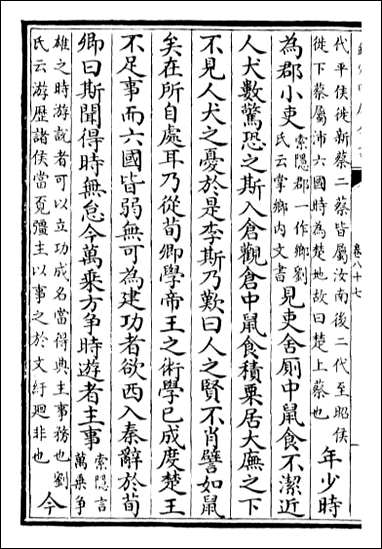 代平侯徙新蔡二蔡皆屬汝南後二代至昭侯
徙下蔡屬沛六國時為楚地故曰楚上蔡也
年少時
為郡小吏
索隱郡一作鄉劉
氏云掌鄉內文書
見吏舍厠中鼠食不潔近
人犬數驚恐之斯入倉觀倉中鼠食積粟居大廡之下
不見人犬之憂於是李斯乃歎曰人之賢不肖譬如鼠
矣在所自處耳乃從荀卿學帝王之術學已成度楚王
不足事而六國皆弱無可為建功者欲西入秦辭於荀
卿曰斯聞得時無怠今萬乘方爭時遊者主事
索隱言
萬乘爭
雄之時游說者可以立功成名當得典主事務也劉
氏云游歷諸侯當覓彊主以事之於文紆迴非也
今
卷八十七